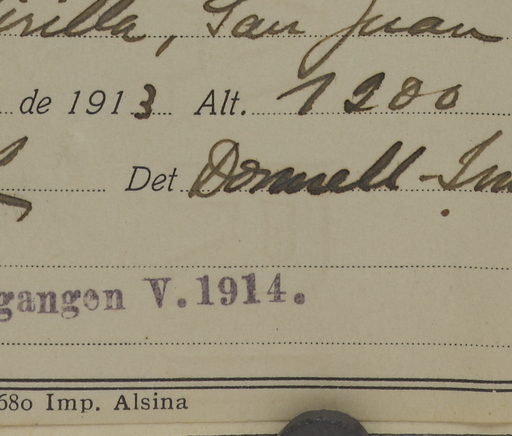 San Juan
de 1913 Alt. 1200
Det Donnell-Sm
gangen V.1914.
680 Imp. Alsina